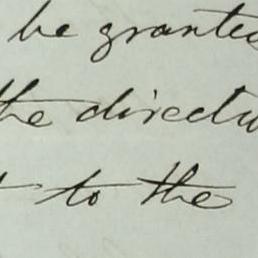 be granted
the directi
to the